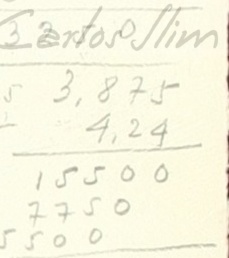 Carlos Slim
3,875
4,24
15500
7750
5500